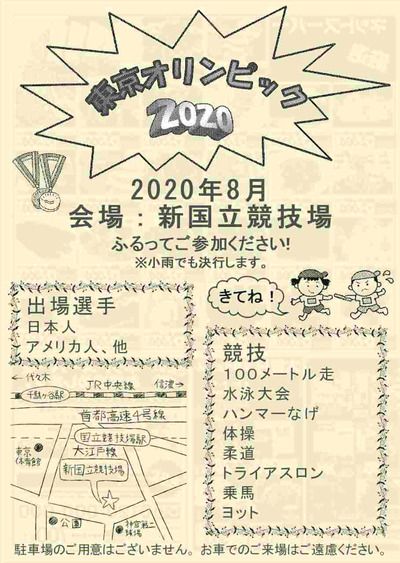 東京オリンピック
2020
2020年8月
会場：新国立競技場
ふるってご参加ください!
※小雨でも決行します。
きてね!
出場選手
日本人
アメリカ人、他
競技
100メートル走
水泳大会
ハンマーなげ
体操
柔道
トライアスロン
乗馬
ヨット
←代々木
信濃→
JR中央線
千駄ヶ谷駅
首都高速4号線
国立競技場駅
大江戸線
新国立競技場
東京
体育館
公園
神宮第二
球場
駐車場のご用意はございません。お車でのご来場はご遠慮ください。